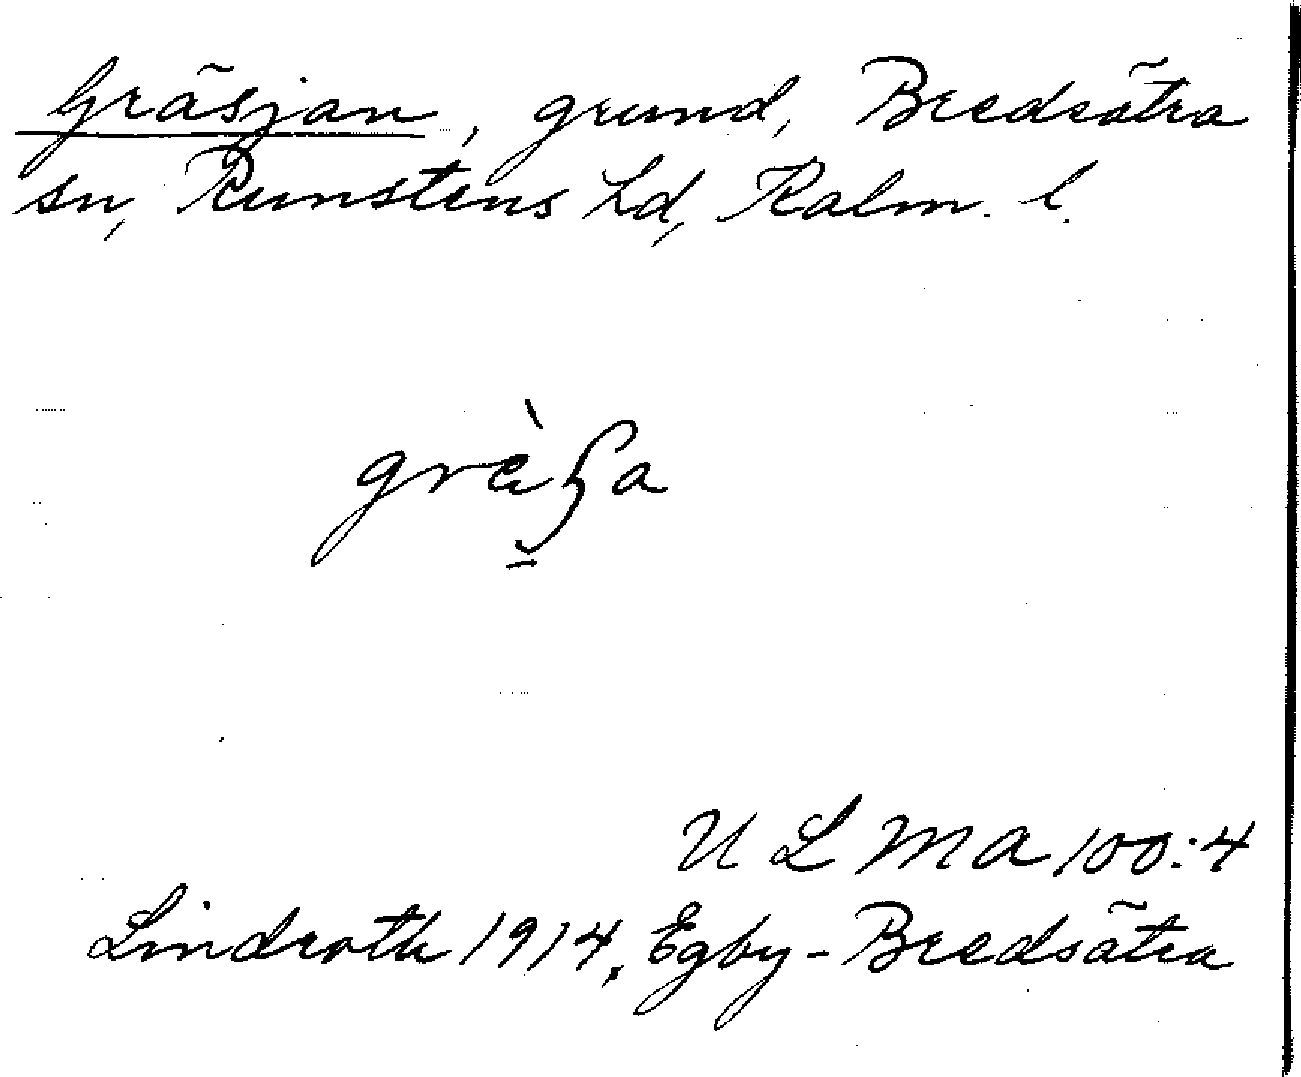 Gräsjan, grund, Bredsätra
sn, Runstens hd, Kalm. l.
ULMA 100:4
Lindroth 1914, Egby-Bredsätra